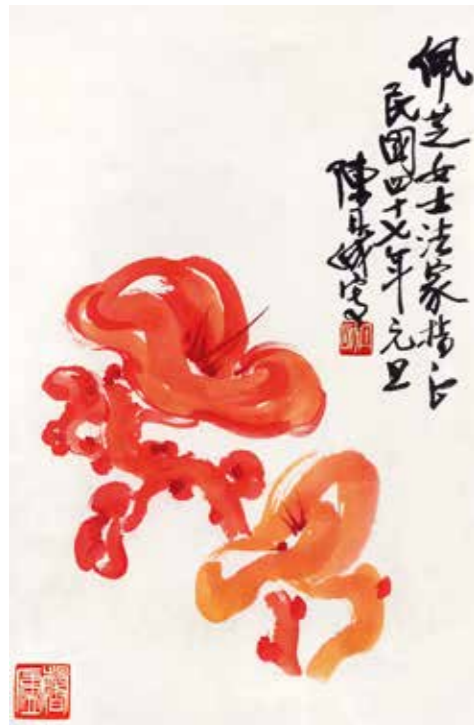 佩芝女士法家指正
民國四十七年元旦
陳
寫